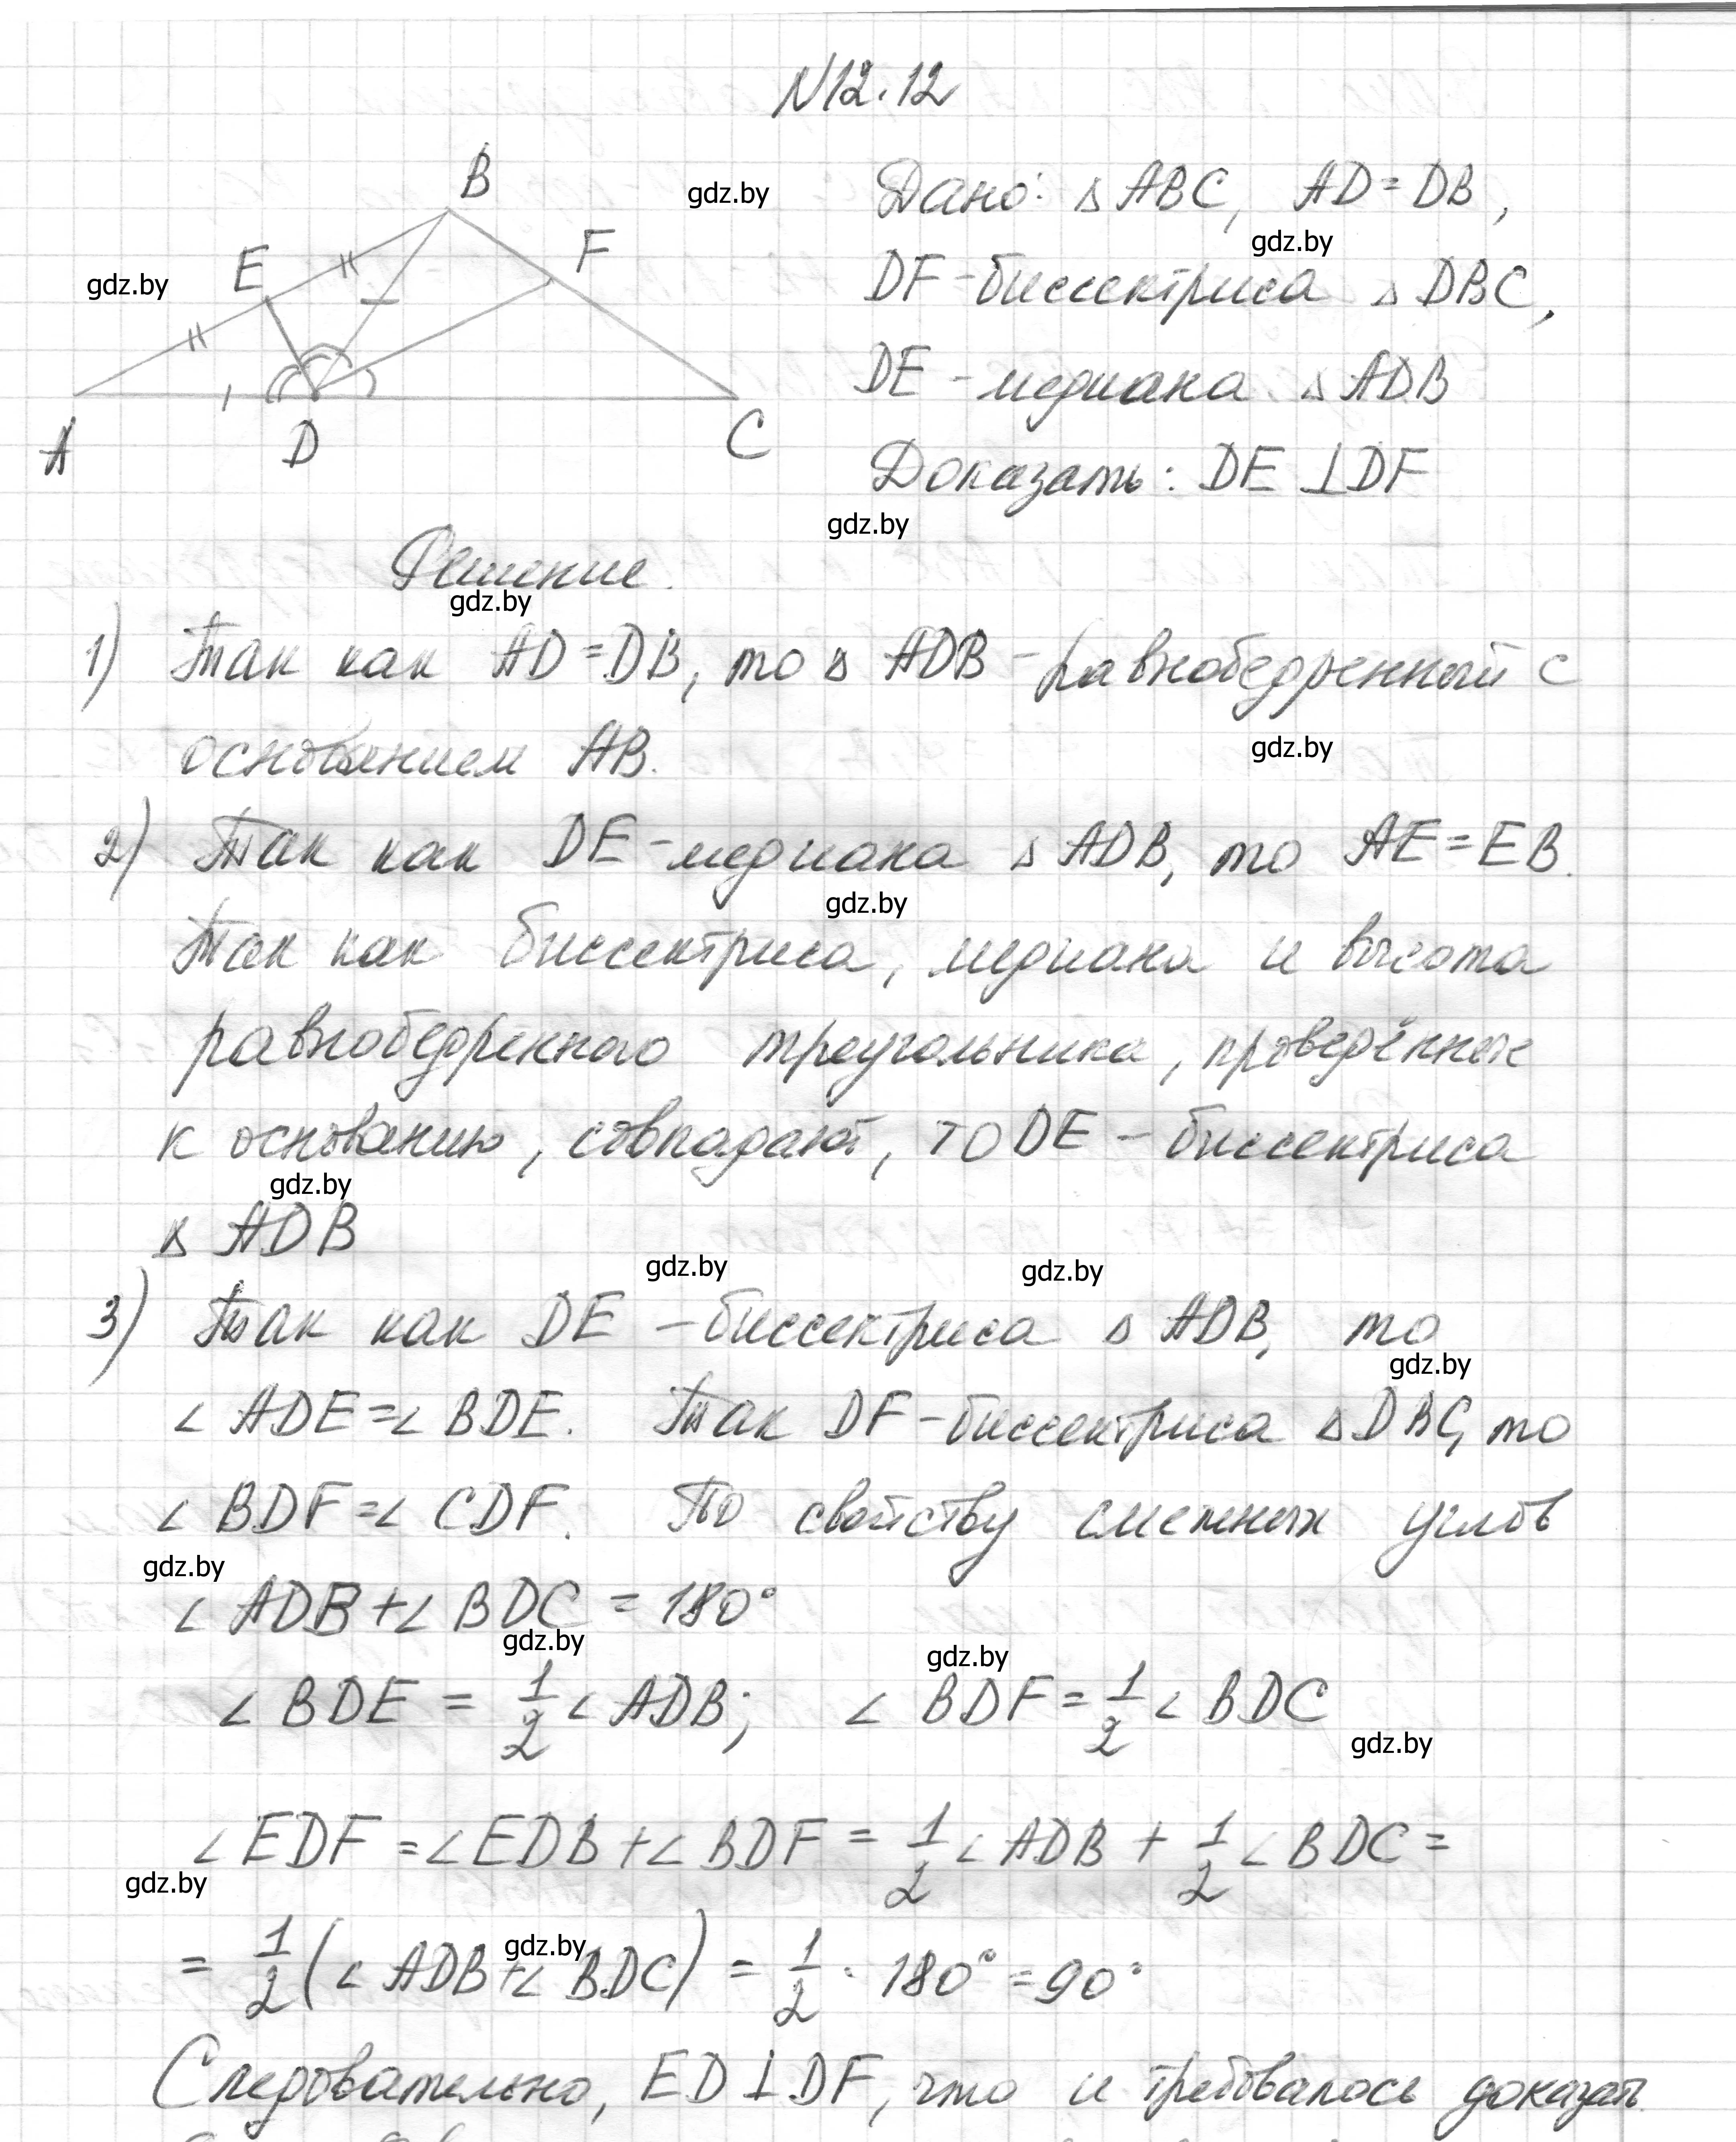 N12.12
B
gdz.by
Дано: △ ABC, AD = DB,
F
gdz.by
E
gdz.by
DF - биссектриса △ DBC,
DE - медиана △ ADB
A
D
C
Доказать: DE ⊥ DF
gdz.by
Решение.
gdz.by
1) Так как AD = DB, то △ ADB - равнобедренный с
основанием AB.
gdz.by
2) Так как DE - медиана △ ADB, то AE = EB.
gdz.by
Так как биссектриса, медиана и высота
равнобедренного треугольника, проведённые
к основанию, совпадают, то DE - биссектриса
gdz.by
△ ADB
gdz.by
gdz.by
3) Так как DE - биссектриса △ ADB, то
gdz.by
∠ ADE = ∠ BDE. Так DF - биссектриса △ DBC, то
∠ BDF = ∠ CDF. По свойству смежных углов
gdz.by
∠ ADB + ∠ BDC = 180°
gdz.by
gdz.by
∠ BDE = 1/2 ∠ ADB; ∠ BDF = 1/2 ∠ BDC
gdz.by
∠ EDF = ∠ EDB + ∠ BDF = 1/2 ∠ ADB + 1/2 ∠ BDC =
gdz.by
gdz.by
= 1/2 (∠ ADB + ∠ BDC) = 1/2 · 180° = 90°
Следовательно, ED ⊥ DF, что и требовалось доказать